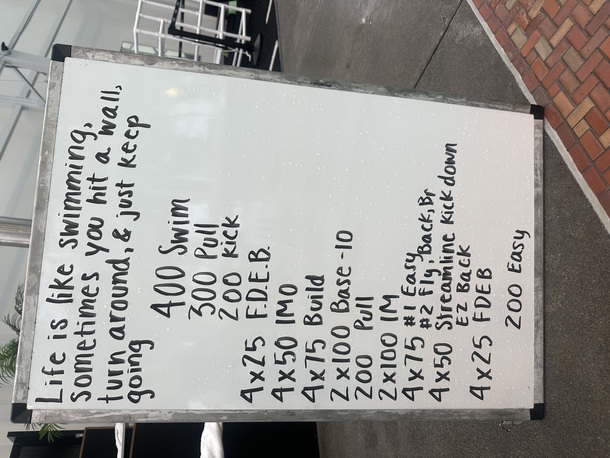 Life is like swimming,
sometimes you hit a wall,
turn around, & just keep
going
400 Swim
300 Pull
200 Kick
4x25 F.D.E.B.
4x50 IMO
4x75 Build
2x100 Base -10
200 Pull
2x100 IM
4x75 #1 Easy
#2 Fly, Back, Br
4x50 Streamline Kick down
EZ Back
4x25 FDEB
200 Easy